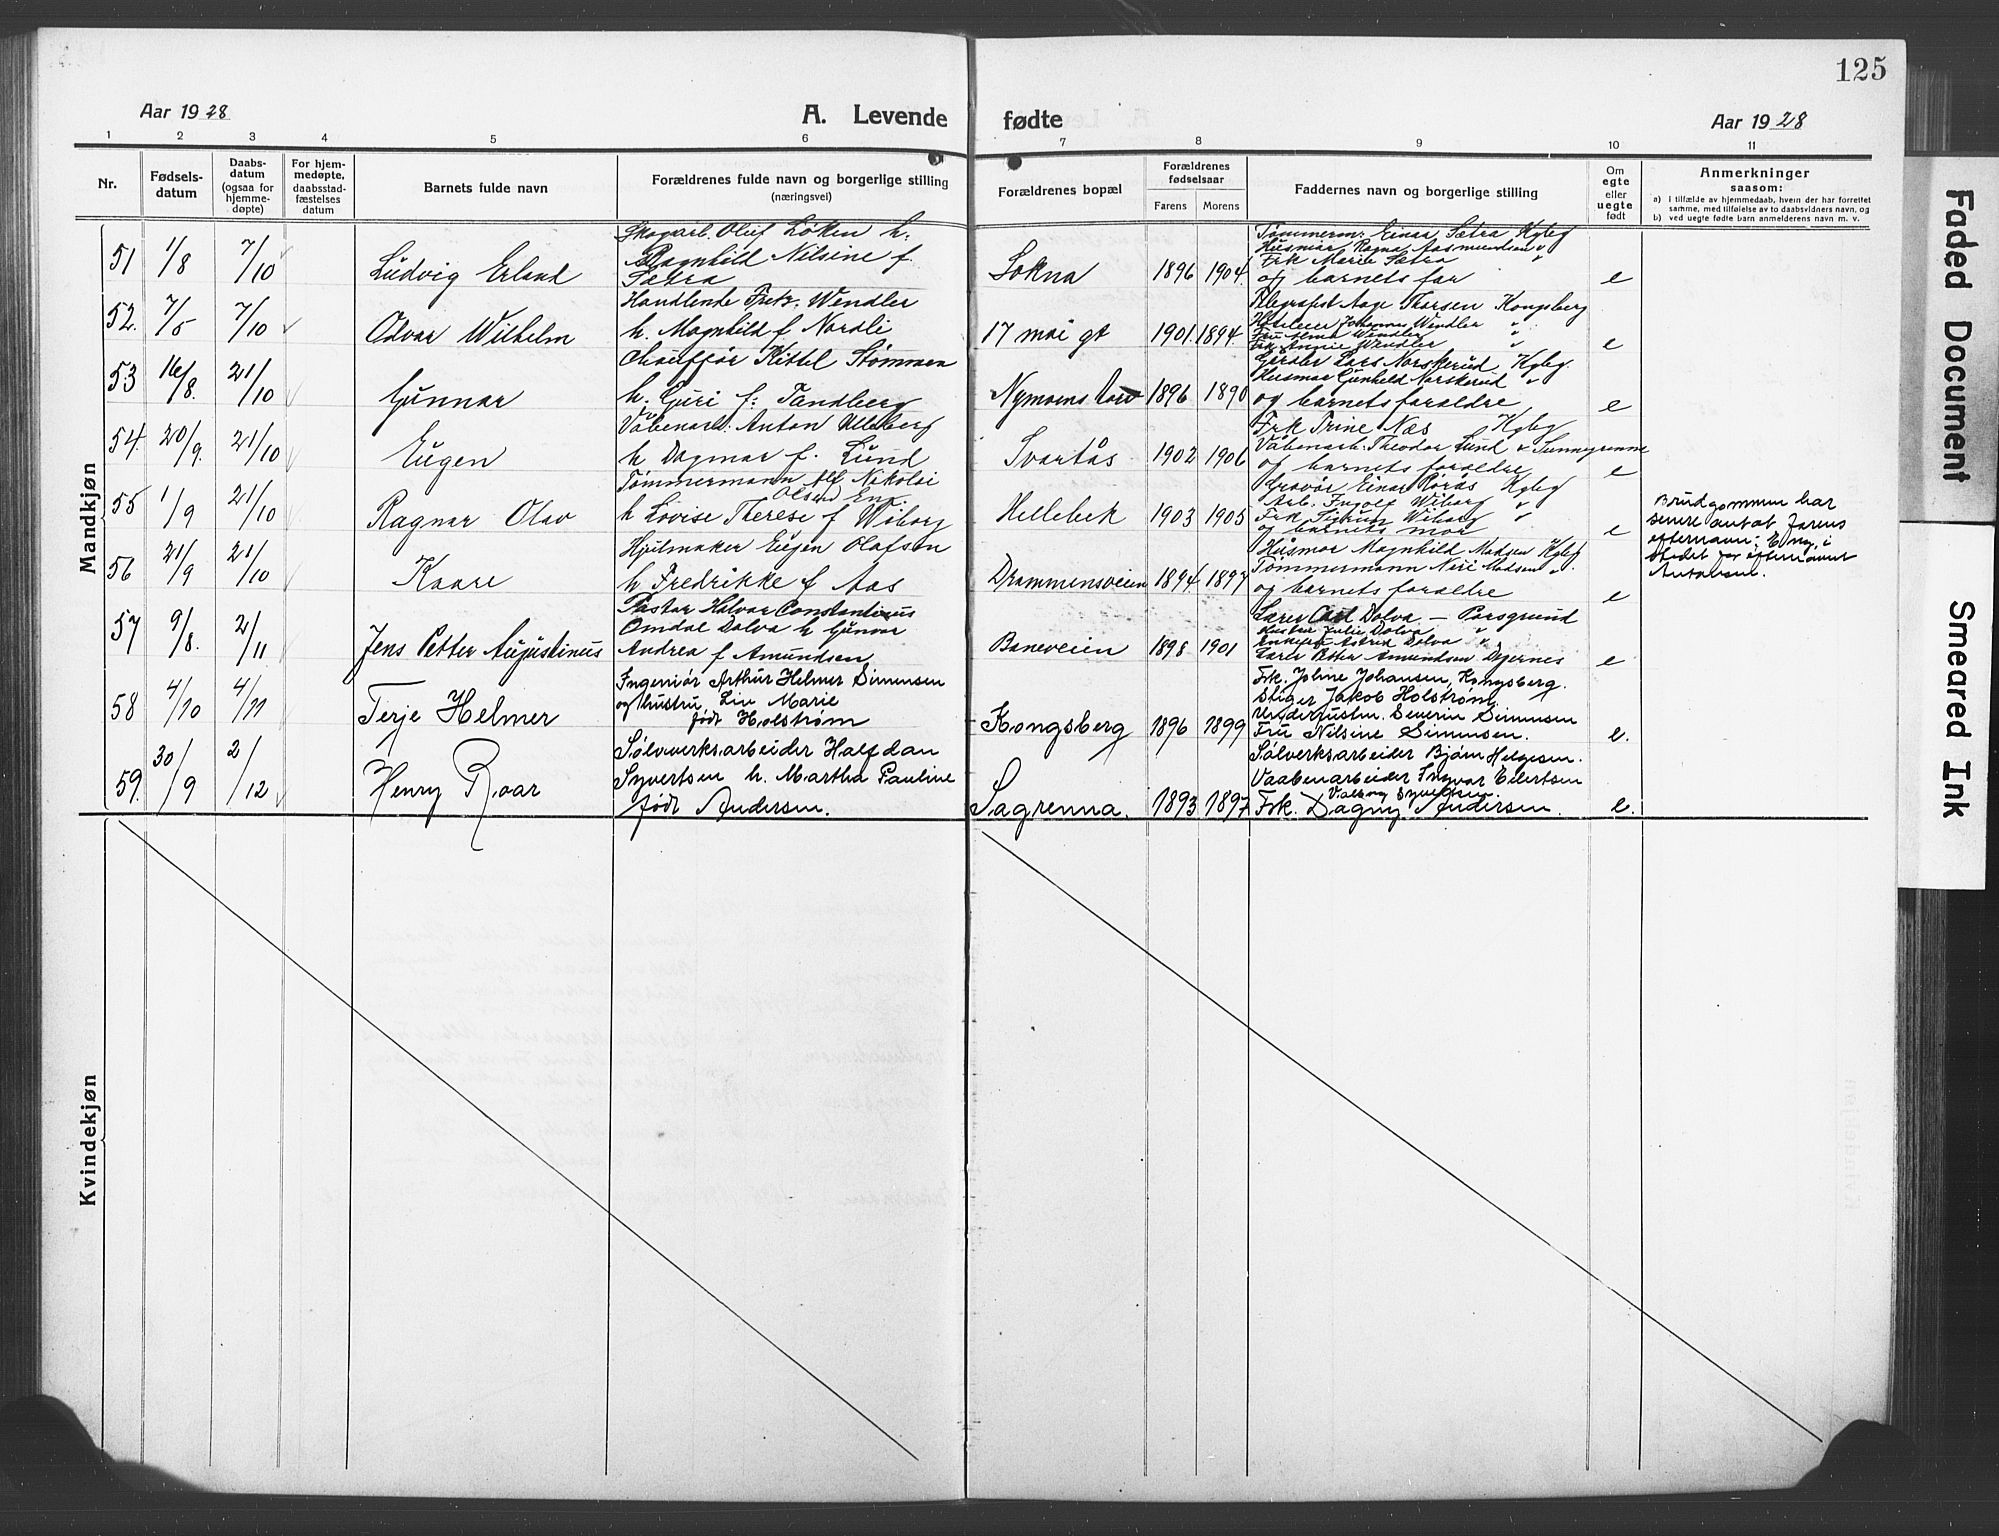 125
Aar 1928
A. Levende fødte
Aar 1928
1 2 3 4 5 6 7 8 9 10 11
Nr.
Fødsels-
datum
Daabs-
datum
(ogsaa for
hjemme-
døpte)
For hjem-
medøpte,
daabsstad-
fæstelses
datum
Barnets fulde navn
Forældrenes fulde navn og borgerlige stilling
(næringsvei)
Forældrenes bopæl
Forældrenes
fødselsaar
Farens Morens
Faddernes navn og borgerlige stilling
Om
egte
eller
uegte
født
Anmerkninger
saasom:
a) i tilfælde av hjemmedaab, hvem der har forrettet
samme, med tilføielse av to daabsvidners navn, og
b) ved uegte fødte barn anmelderens navn m. v.
Mandkjøn
51 1/8 7/10 Ludvig Erland
Skogarb. Oluf Løken h.
Ragnhild Nilsine f.
Sætra
Sokna 1896 1904
Tømmerm. Einar Sætra Kgbg
Husmor Ragna Aasmundsen "
Frk Marie Sætra "
og barnets far
e
52. 7/5 7/10 Odvar Wilhelm
Handlende Fritz Wendler
h. Magnhild f Nordli
17 mai gt 1901 1894
Telegrafist Aage Thorsen Kongsberg
Johannes Wendler "
Fru Alma Wendler
Frk. Annie Wendler "
e
53 16/8. 21/10 Gunnar
Chauffør Kittel Strømmen
h. Guri f: Tandberg
Nymoens torv 1896 1890
Lars Norskerud Kgbg.
Husmor Gunhild Norskerud "
og barnets foraldre
e
54. 20/9. 21/10 Eugen
Våbenarb. Anton Ulleberg
h Dagmar f. Lund
Svartås 1902 1906
Frk Trine Næs Kgbg
Våbenarb. Theodor Lund
og barnets foraldre
e
55 1/9 21/10 Ragnar Olav
Tømmermann Alf Nikolai
Olsen Eng.
h Lovise Therese f Wiborg
Hellebek 1903 1905
Gravør Einar Rørås Kgbg
Arb. Ingolf Wiborg "
Frk Wiborg "
og barnets mor
e
Brudgommen har
senere antat farens
efternavn: Eng, i
stedet for efternavnet
56 21/9 21/10 Kaare
Hjulmaker Eugen Olafsen
h Fredrikke f Aas
Drammensveien 1894 1897
Husmor Magnhild Madsen Kgbg
Tømmermann Madsen "
og barnets foraldre
e
57 9/8. 2/11 Jens Petter Augustinus
Pastor Halvar Constantinus
Omdal Dolva h Gunvor
Andrea f Amundsen
Baneveien 1898 1901
Lærer Carl Dolva — Porsgrund
Hustru Julie Dolva
Astrid Dolva "
Lærer Petter Amundsen Degernes
e
58 4/10 4/11 Terje Helmer
Ingeniør Arthur Helmer Simensen
og hustru Liv Marie
født Holstrøm
Kongsberg 1896 1899
Frk. Johne Johansen, Kongsberg.
Stiger Jakob Holstrøm
Severin Simensen
Fru Nilsine Simensen.
e.
59. 30/9 2/12 Henry Roar
Sølvverksarbeider Halfdan
Syvertsen h. Martha Pauline
født Andersen.
Sagrenna. 1893 1897
Sølverksarbeider Bjørn Helgesen.
Vaabenarbeider Ingvar Eilertsen
Valborg Syvertsen
Frk. Dagny Andersen.
e.
Kvindekjøn
Faded Document
Smeared Ink